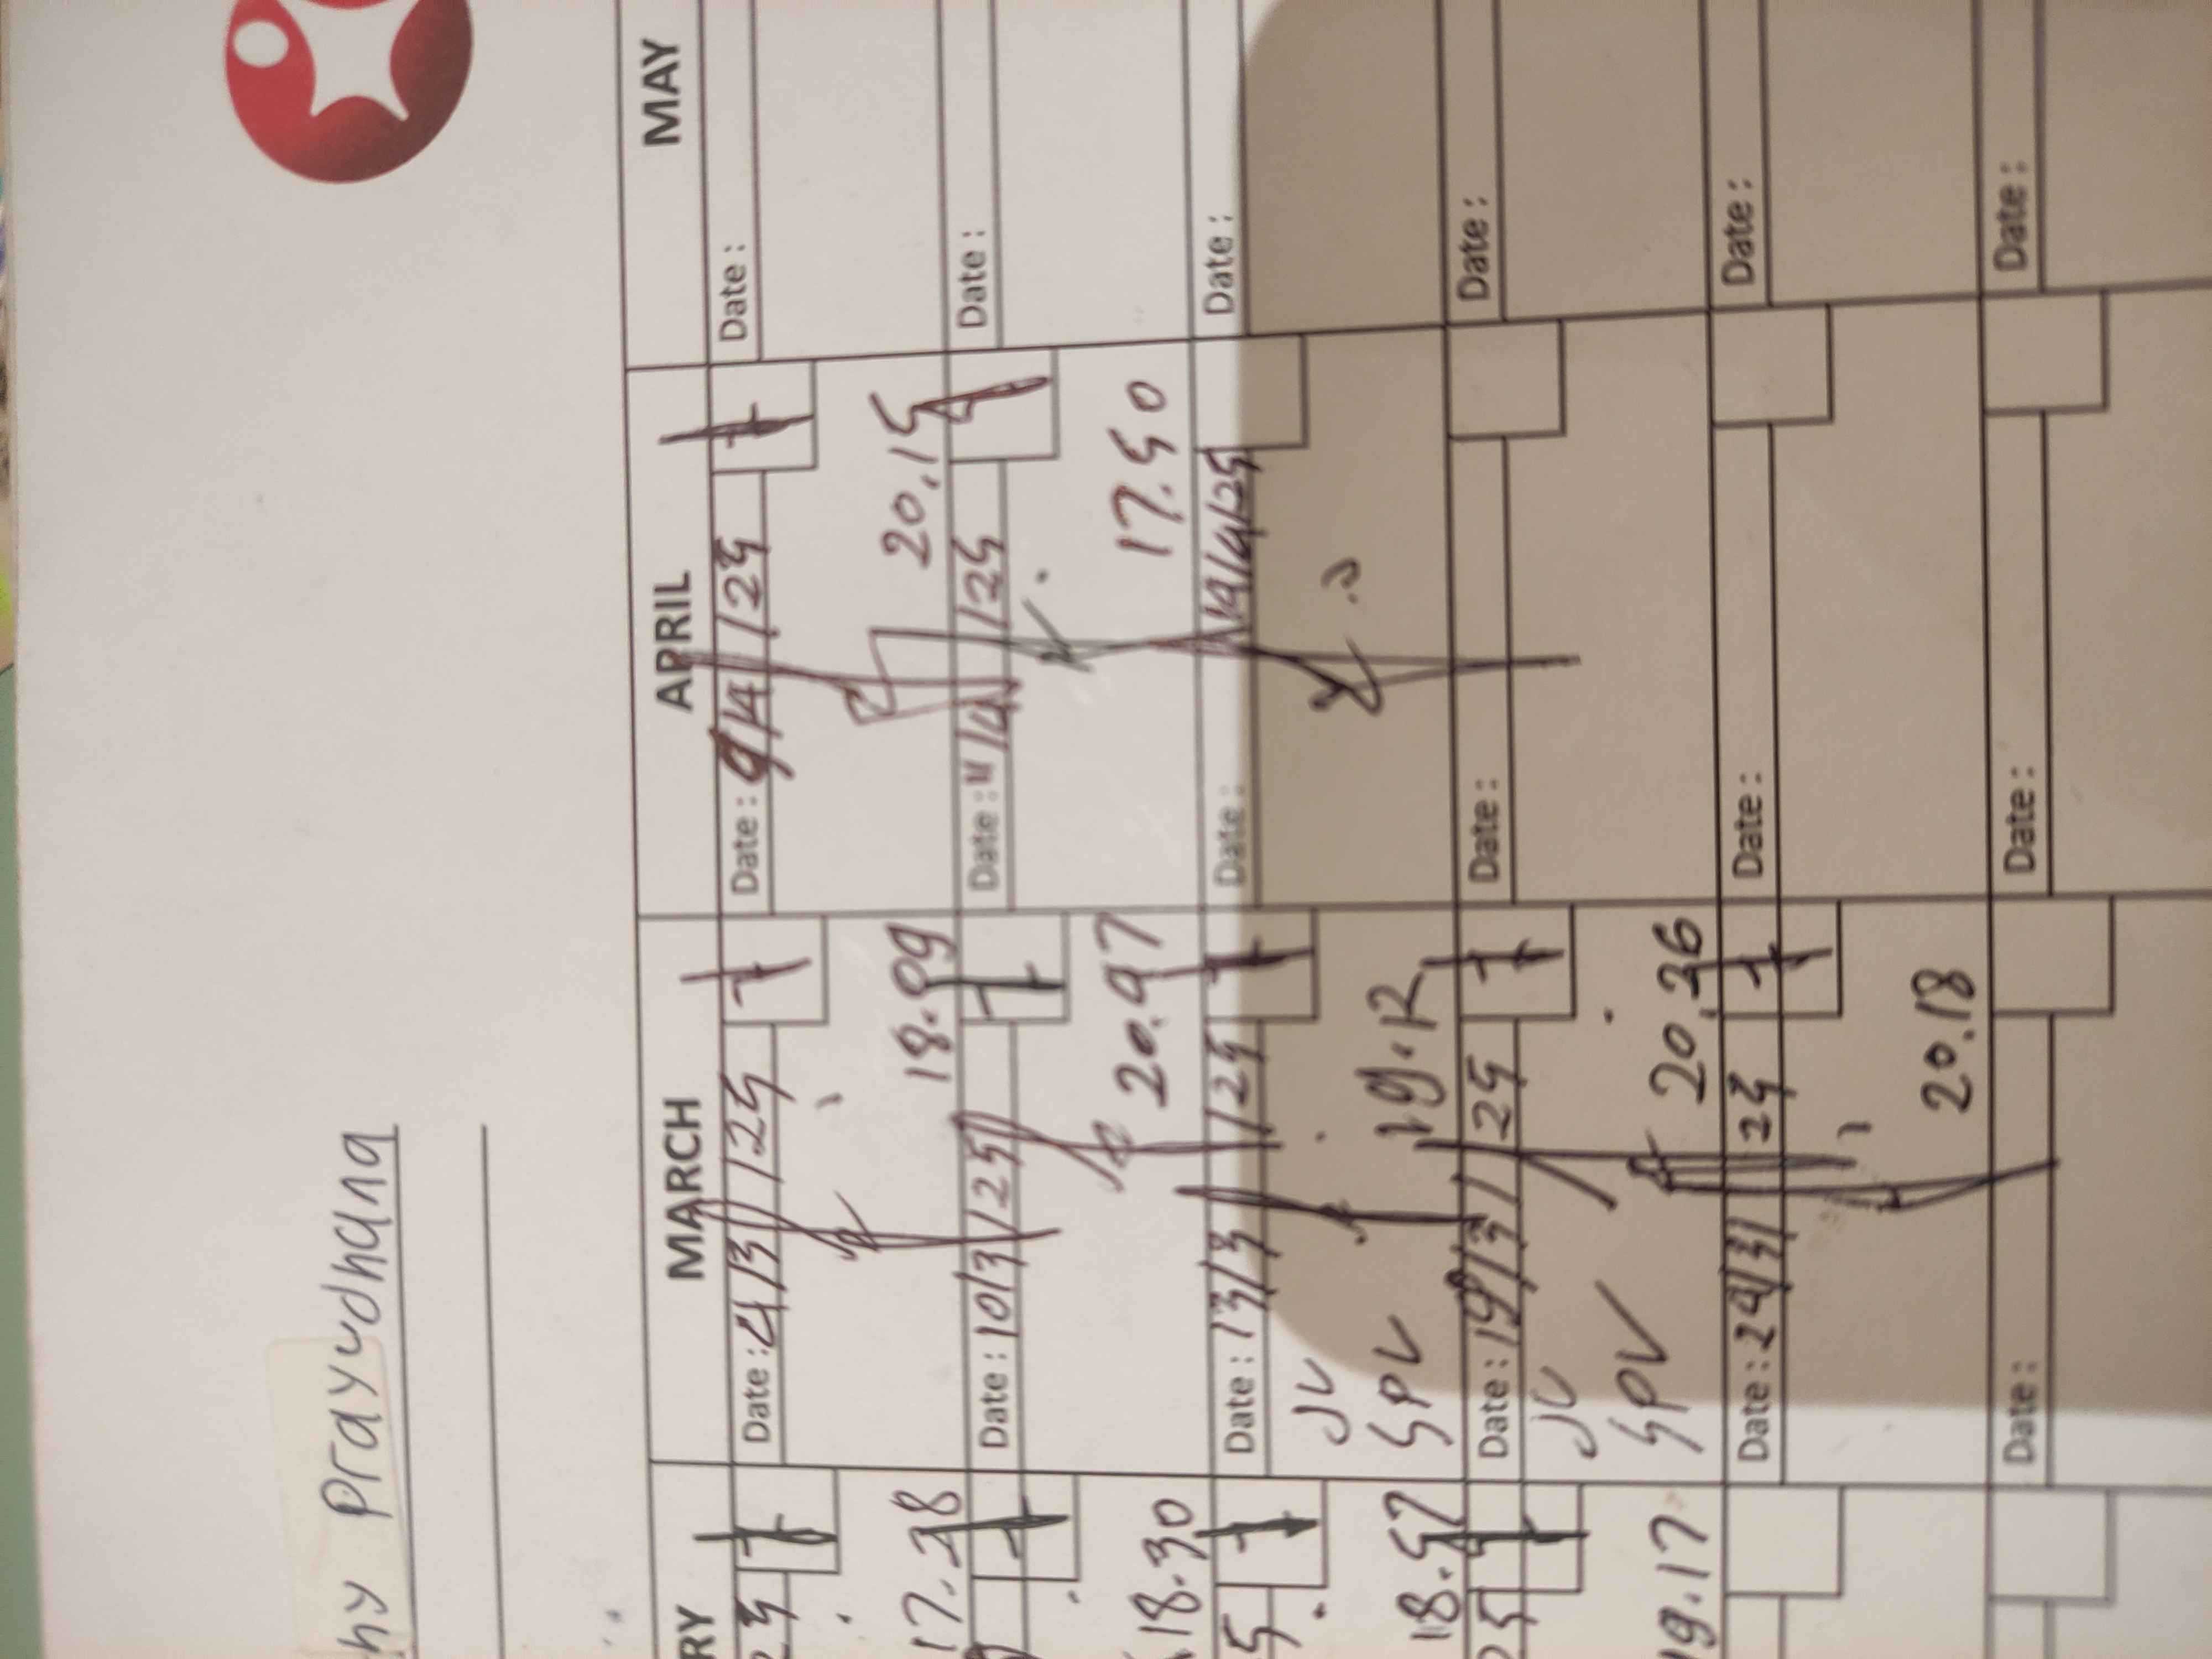 hy Prayudhana
RY
MARCH
APRIL
MAY
25
Date : 4/3/25
Date : 9/4/25
Date :
17.28
18.09
20.15
Date : 10/3/25
Date : 11/4/25
Date :
18.30
20.97
17.50
5
Date : 13/3/25
Date : 19/4/25
Date :
JV
SPV
18.57
19.12
25
Date : 19/3/25
Date :
Date :
JV
SPV
19.17
20.36
Date : 24/3/25
Date :
Date :
20.18
Date :
Date :
Date :